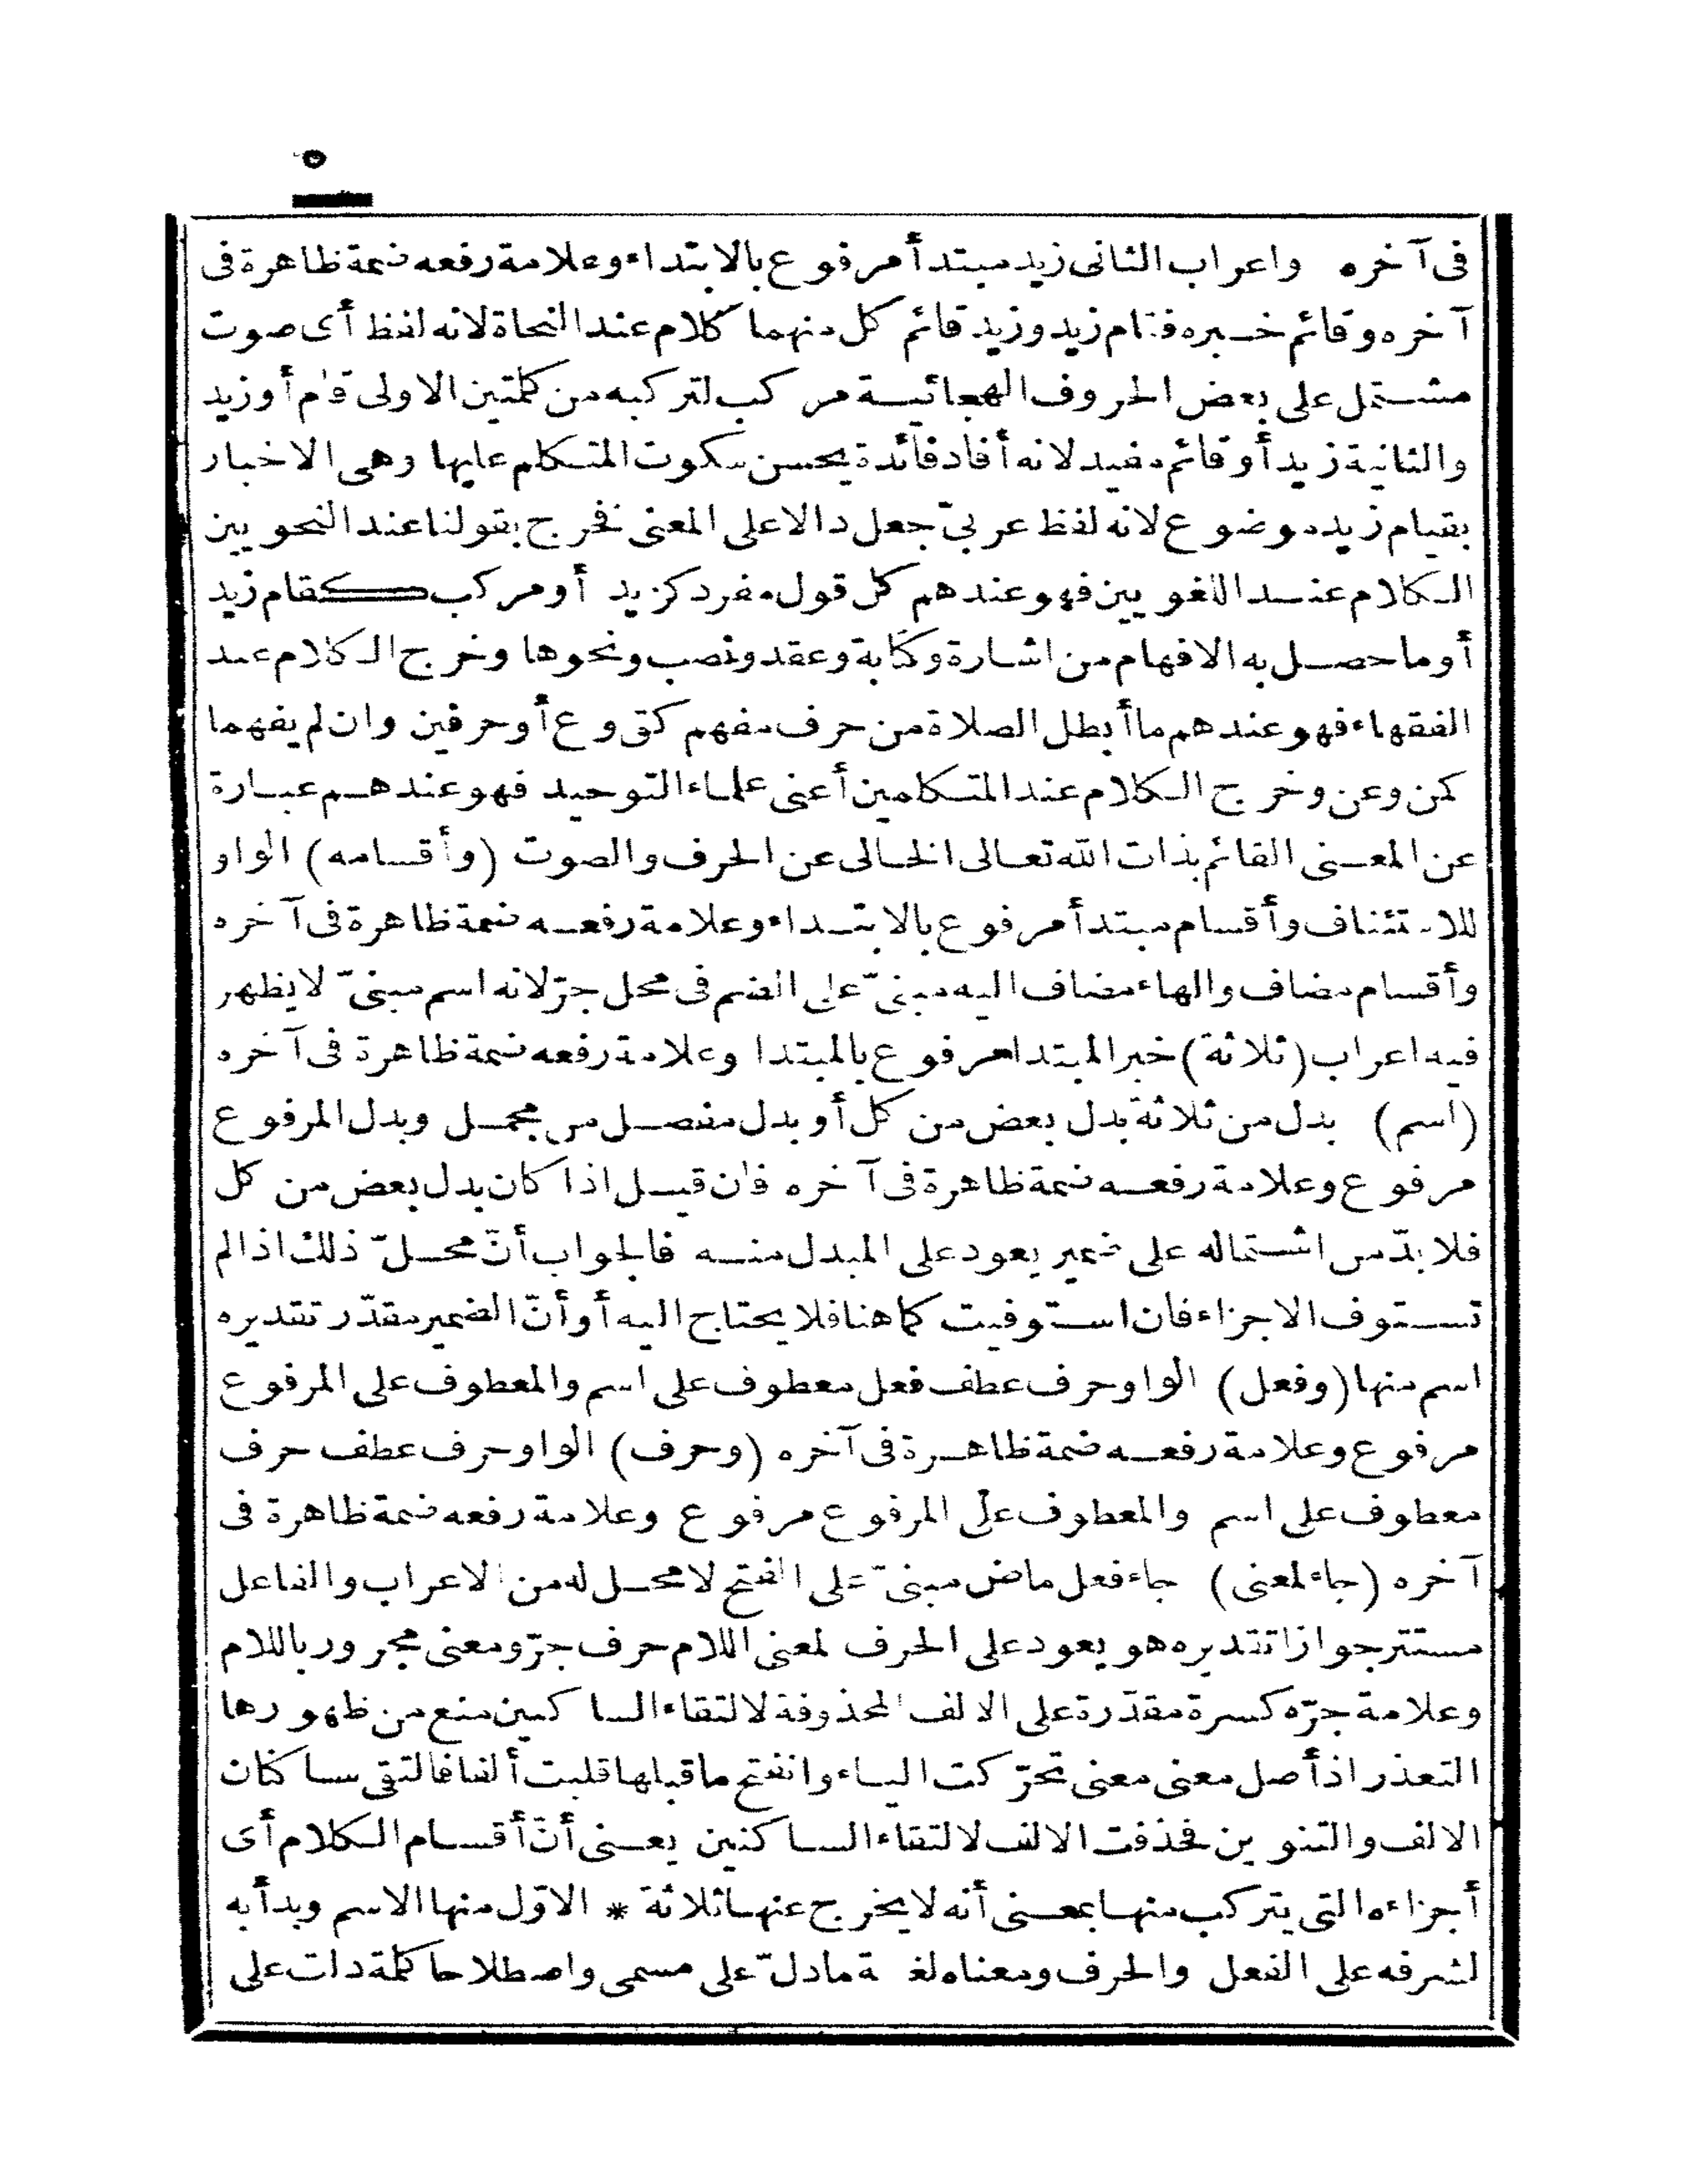 ٥
فى آخره واعراب الثانى زيد مبتدأ مرفوع بالابتداء وعلامة رفعه ضمة ظاهرة فى
آخره وقائم خبره فقام زيد وزيد قائم كل منهما كلام عند النحاة لانه لفظ أى صوت
مشتمل على بعض الحروف الهجائية مركب لتركبه من كلمتين الاولى قام أو زيد
والثانية زيد أو قائم مفيد لانه أفاد فائدة يحسن سكوت المتكلم عليها وهى الاخبار
بقيام زيد موضوع لانه لفظ عربىّ جعل دالا على المعنى فخرج بقولنا عند النحويين
الكلام عند اللغويين فهو عندهم كل قول مفرد كزيد أو مركب كقام زيد
أو ما حصل به الافهام من اشارة وكتابة وعقد ونصب ونحوها وخرج الكلام عند
الفقهاء فهو عندهم ما أبطل الصلاة من حرف مفهم كق وع أو حرفين وان لم يفهما
كمن وعن وخرج الكلام عند المتكلمين أعنى علماء التوحيد فهو عندهم عبارة
عن المعنى القائم بذات الله تعالى الخالى عن الحرف والصوت (وأقسامه) الواو
للاستئناف وأقسام مبتدأ مرفوع بالابتداء وعلامة رفعه ضمة ظاهرة فى آخره
وأقسام مضاف والهاء مضاف اليه مبنىّ على الضم فى محل جرّ لانه اسم مبنىّ لا يظهر
فيه اعراب (ثلاثة) خبر المبتدا مرفوع بالمبتدا وعلامة رفعه ضمة ظاهرة فى آخره
(اسم) بدل من ثلاثة بدل بعض من كل أو بدل مفصل من مجمل وبدل المرفوع
مرفوع وعلامة رفعه ضمة ظاهرة فى آخره فان قيل اذا كان بدل بعض من كل
فلا بدّ من اشتماله على ضمير يعود على المبدل منه فالجواب أنّ محلّ ذلك اذا لم
تستوف الاجزاء فان استوفيت كما هنا فلا يحتاج اليه أو أنّ الضمير مقدّر تقديره
اسم منها (وفعل) الواو حرف عطف فعل معطوف على اسم والمعطوف على المرفوع
مرفوع وعلامة رفعه ضمة ظاهرة فى آخره (وحرف) الواو حرف عطف حرف
معطوف على اسم والمعطوف على المرفوع مرفوع وعلامة رفعه ضمة ظاهرة فى
آخره (جاء لمعنى) جاء فعل ماض مبنىّ على الفتح لا محل له من الاعراب والفاعل
مستتر جوازا تقديره هو يعود على الحرف لمعنى اللام حرف جرّ ومعنى مجرور باللام
وعلامة جرّه كسرة مقدّرة على الالف المحذوفة لالتقاء الساكنين منع من ظهورها
التعذر اذ أصل معنى معنى تحرّكت الياء وانفتح ما قبلها قلبت ألفا فالتقى ساكنان
الالف والتنوين فحذفت الالف لالتقاء الساكنين يعنى أنّ أقسام الكلام أى
أجزاءه التى يتركب منها بمعنى أنه لا يخرج عنها ثلاثة * الاوّل منها الاسم وبدأ به
لشرفه على الفعل والحرف ومعناه لغة ما دلّ على مسمى واصطلاحا كلمة دلت على